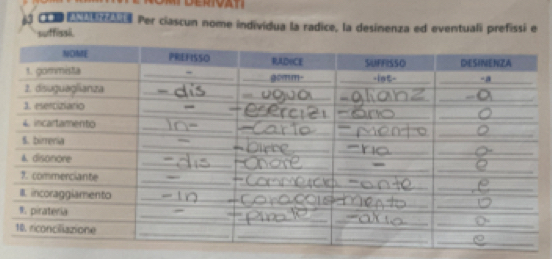 NOMI PRIMITIVI E NOMI DERIVATI
63 ANALIZZARE Per ciascun nome individua la radice, la desinenza ed eventuali prefissi e
suffissi.
NOME PREFISSO RADICE SUFFISSO DESINENZA
1. gommista - gomm- -ist- -a
2. disuguaglianza - dis - ugua - glianz - a
3. eserciziario - - esercizi - ario o
4. incartamento in- - carta - mento o
5. birreria - - birre - ria a
6. disonore - dis - onore - e
7. commerciante - - commerci - ante e
8. incoraggiamento - in - coraggi - mento o
9. pirateria - - pirat - aria a
10. riconciliazione e